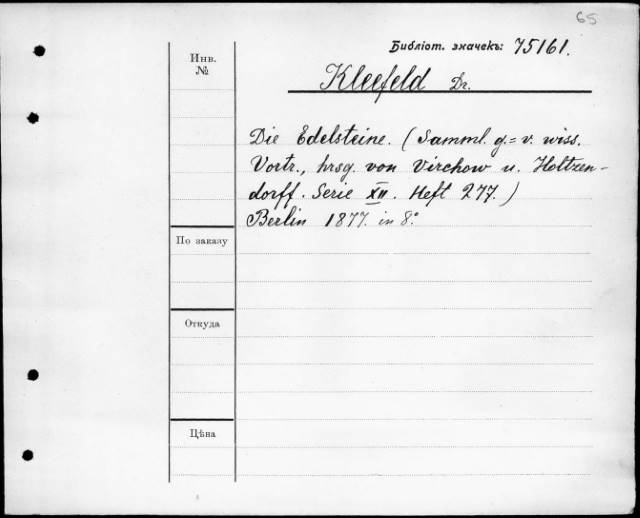 65
Библіот. значекъ: 75161.
Инв.
№
Kleefeld Dr.
Die Edelsteine. (Samml. g.=v. wiss.
Vortr., hrsg. von Virchow u. Holtzen-
dorff. Serie XII. Heft 277.)
Berlin 1877. in 8º
По заказу
Откуда
Цѣна